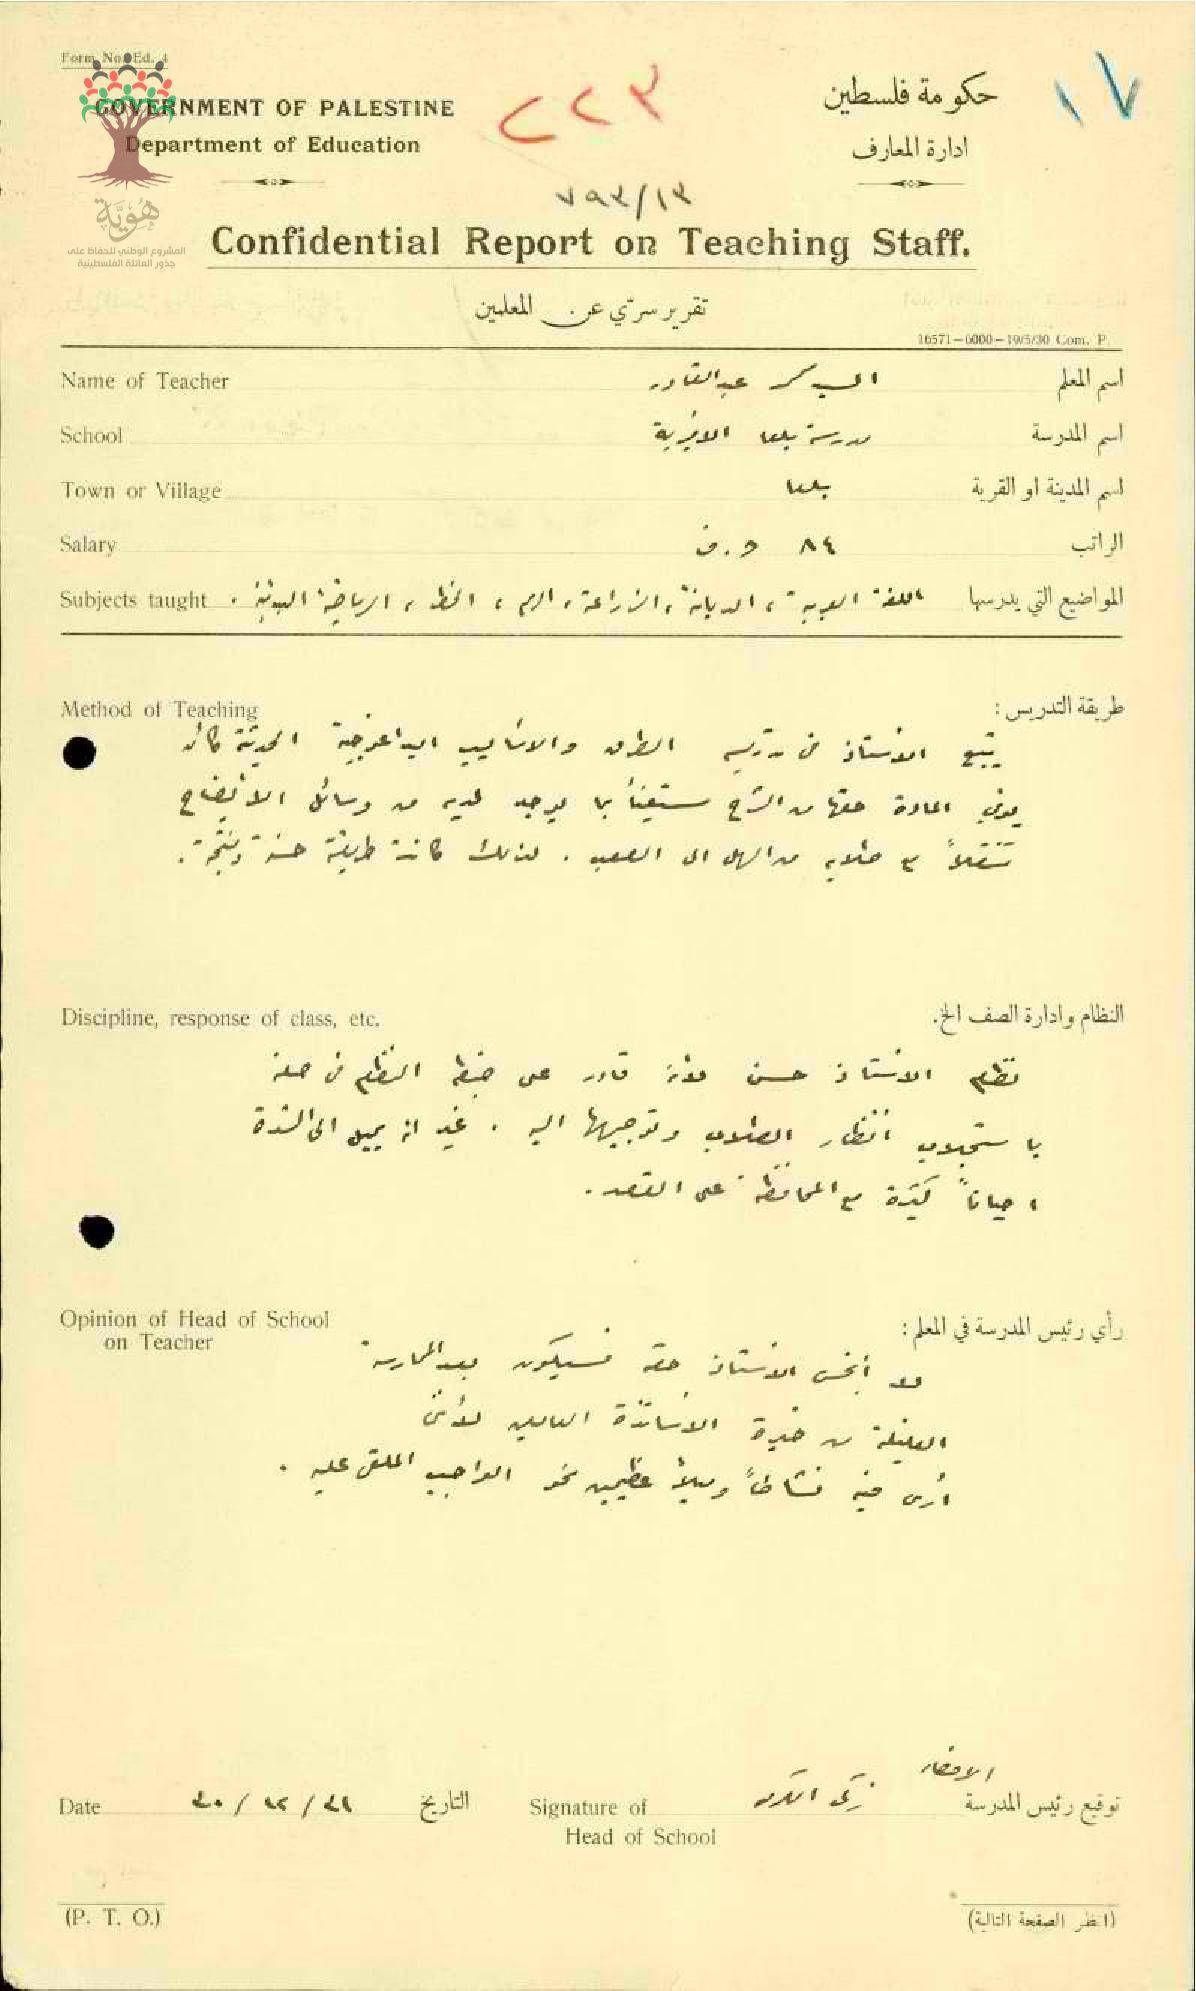 Form No. Ed. 4
GOVERNMENT OF PALESTINE
Department of Education
حكومة فلسطين
ادارة المعارف
١٧
٢٢٣
٧٩٣/١٣
هُوِيَّة
المشروع الوطني للحفاظ على
جذور العائلة الفلسطينية
Confidential Report on Teaching Staff.
تقرير سرّي عن المعلمين
16571—6000—19/5/30 Com. P.
Name of Teacher السيد عبد القادر اسم المعلم
School مدرسة بلعا الاميرية اسم المدرسة
Town or Village بلعا اسم المدينة او القرية
Salary ٨٤ ج.ف الراتب
Subjects taught اللغة العربية، الديانة، الزراعة، الرسم، الخط، الرياضة البدنية. المواضيع التي يدرسها
Method of Teaching طريقة التدريس:
يتبع الاستاذ في تدريسه الطرق والاساليب البداغوجية الحديثة
يوفي المادة حقها من الشرح مستعيناً بما يوجد لديه من وسائل الايضاح
متنقلاً مع طلابه من السهل الى الصعب. لذلك كانت طريقته حسنة ومنتجة.
Discipline, response of class, etc. النظام وادارة الصف الخ.
نظام الاستاذ حسن لانه قادر على ضبط النظام في صفه
باستجلاب انظار الطلاب وتوجيهها اليه. غير انه يميل الى الشدة
احياناً كثيرة مع المحافظة على القصد.
Opinion of Head of School
on Teacher
رأي رئيس المدرسة في المعلم:
لا أبخس الاستاذ حقه فسيكون بعد الممارسة
القليلة من خيرة الاساتذة العاملين لأنني
أرى فيه نشاطاً وميلاً عظيمين نحو الواجب الملقى عليه.
الامضاء
Date ٣١ / ١٢ / ٣٠ التاريخ Signature of توقيع رئيس المدرسة
Head of School
(P. T. O.) (انظر الصفحة التالية)